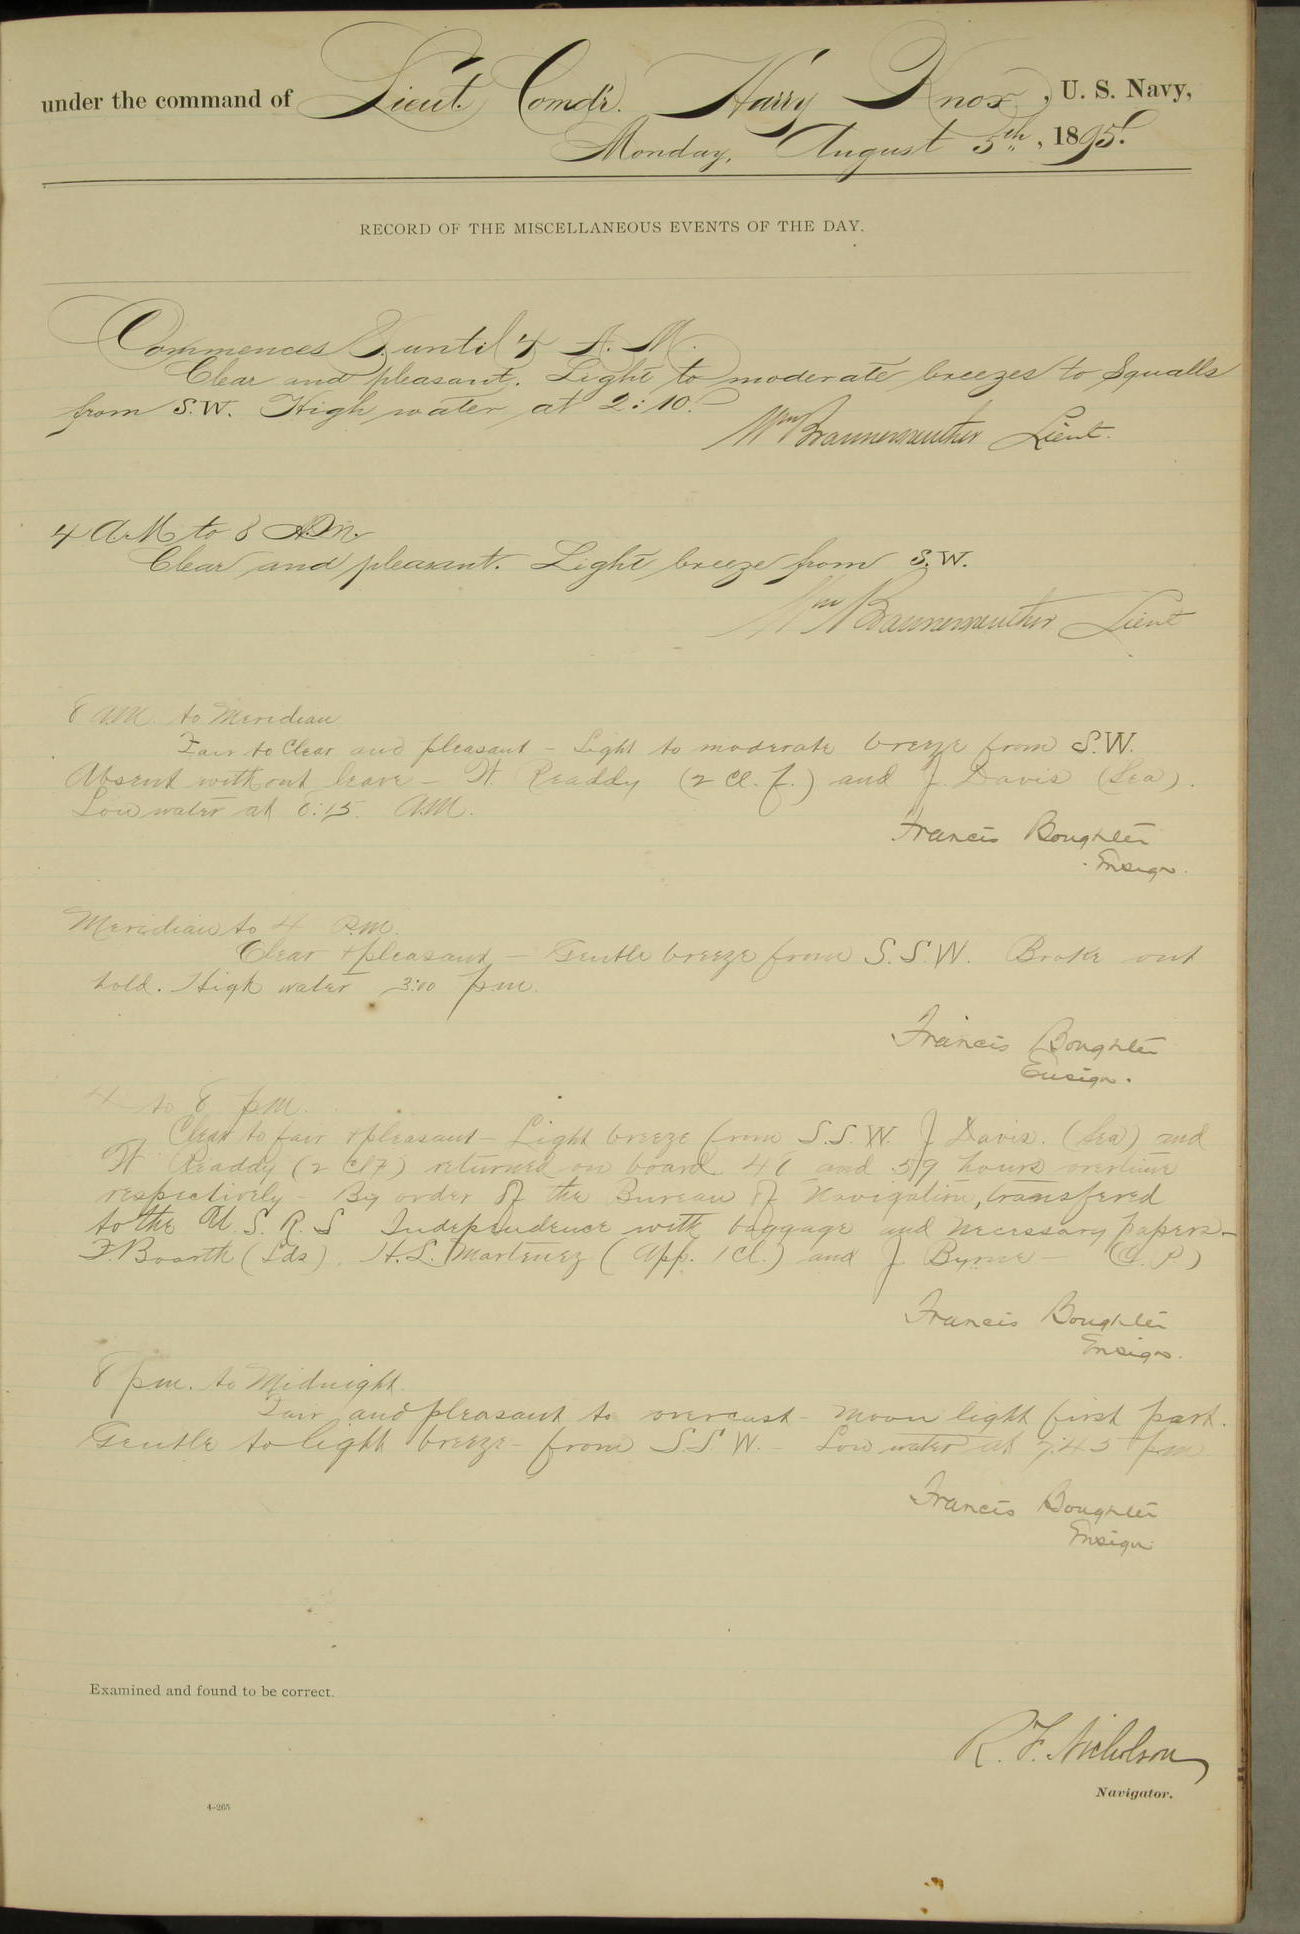 under the command of Lieut. Comd'r. Harry Knox, U. S. Navy,
Monday, August 5th, 1895.
RECORD OF THE MISCELLANEOUS EVENTS OF THE DAY.
Commences & until 4 A. M.
Clear and pleasant. Light to moderate breezes to squalls
from S.W. High water at 2:10.
Wm Braunersreuther Lieut.
4 A.M to 8 A.M.
Clear and pleasant. Light breeze from S.W.
Wm Braunersreuther Lieut
8 A.M. to Meridian
Fair to Clear and pleasant - Light to moderate breeze from S.W.
Absent without leave - W. Readdy (2 cl. f.) and J. Davis (Sea).
Low water at 6:15. A.M.
Francis Boughter
Ensign.
Meridian to 4 P.M.
Clear + pleasant - Gentle breeze from S.S.W. Broke out
hold. High water 3:00 p.m.
Francis Boughter
Ensign.
4 to 8 p.m.
Clear to fair + pleasant - Light breeze from S.S.W. J Davis. (Sea) and
W. Readdy (2 cl f) returned on board and 59 hours overtime
respectively - By order of the Bureau of Navigation, transfered
to the U. S. R. S Independence with baggage and necessary papers -
F. Boarth (Lds), H. L. Martenez (App. 1 Cl.) and J Byrne - (C. P)
Francis Boughter
Ensign.
8 p.m. to Midnight.
Fair and pleasant to overcast - Moon light first part.
Gentle to light breeze - from S.S.W. - Low water at 7:45 p.m
Francis Boughter
Ensign
Examined and found to be correct.
R. F. Nicholson
Navigator.
4-265